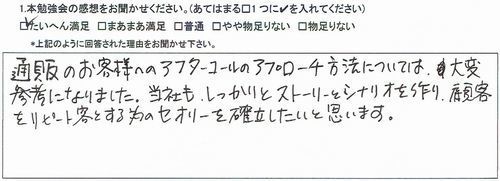 1.本勉強会の感想をお聞かせください。(あてはまる□1つに✓を入れてください)
☑たいへん満足 □まあまあ満足 □普通 □やや物足りない □物足りない
*上記のように回答された理由をお聞かせ下さい。
通販のお客様へのアフターコールのアプローチ方法については、大変
参考になりました。当社も、しっかりとストーリーとシナリオを作り、顧客
をリピート客とする為のセオリーを確立したいと思います。